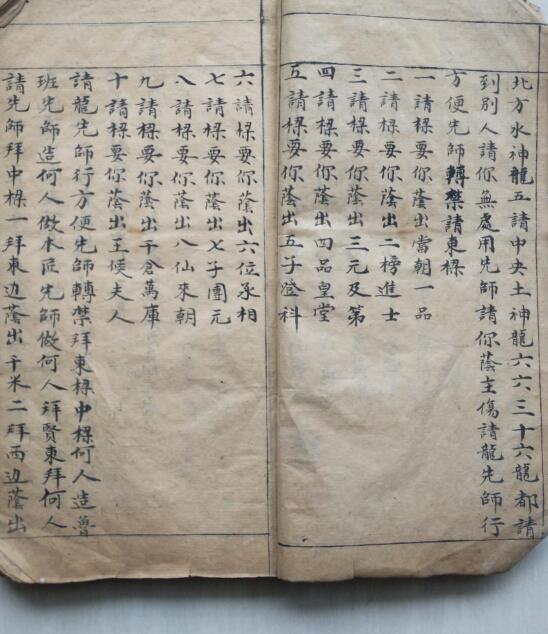 北方水神龍五請中央土神龍六六三十六龍都請
到別人請你無處用先師請你蔭主傷請龍先師行
方便先師轉禁請東樑
一請樑要你蔭出當朝一品
二請樑要你蔭出二榜進士
三請樑要你蔭出三元及第
四請樑要你蔭出四品皇堂
五請樑要你蔭出五子登科
六請樑要你蔭出六位丞相
七請樑要你蔭出七子團元
八請樑要你蔭出八仙來朝
九請樑要你蔭出千倉萬庫
十請樑要你蔭出王侯夫人
請龍先師行方便先師轉禁拜東樑中樑何人造魯
班先師造何人做木匠先師做何人拜賢東拜何人
請先師拜中樑一拜東边蔭出千米二拜西边蔭出